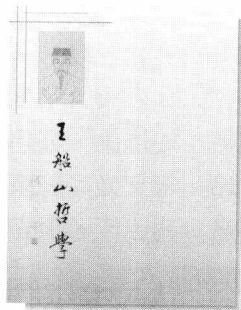 王船山哲學